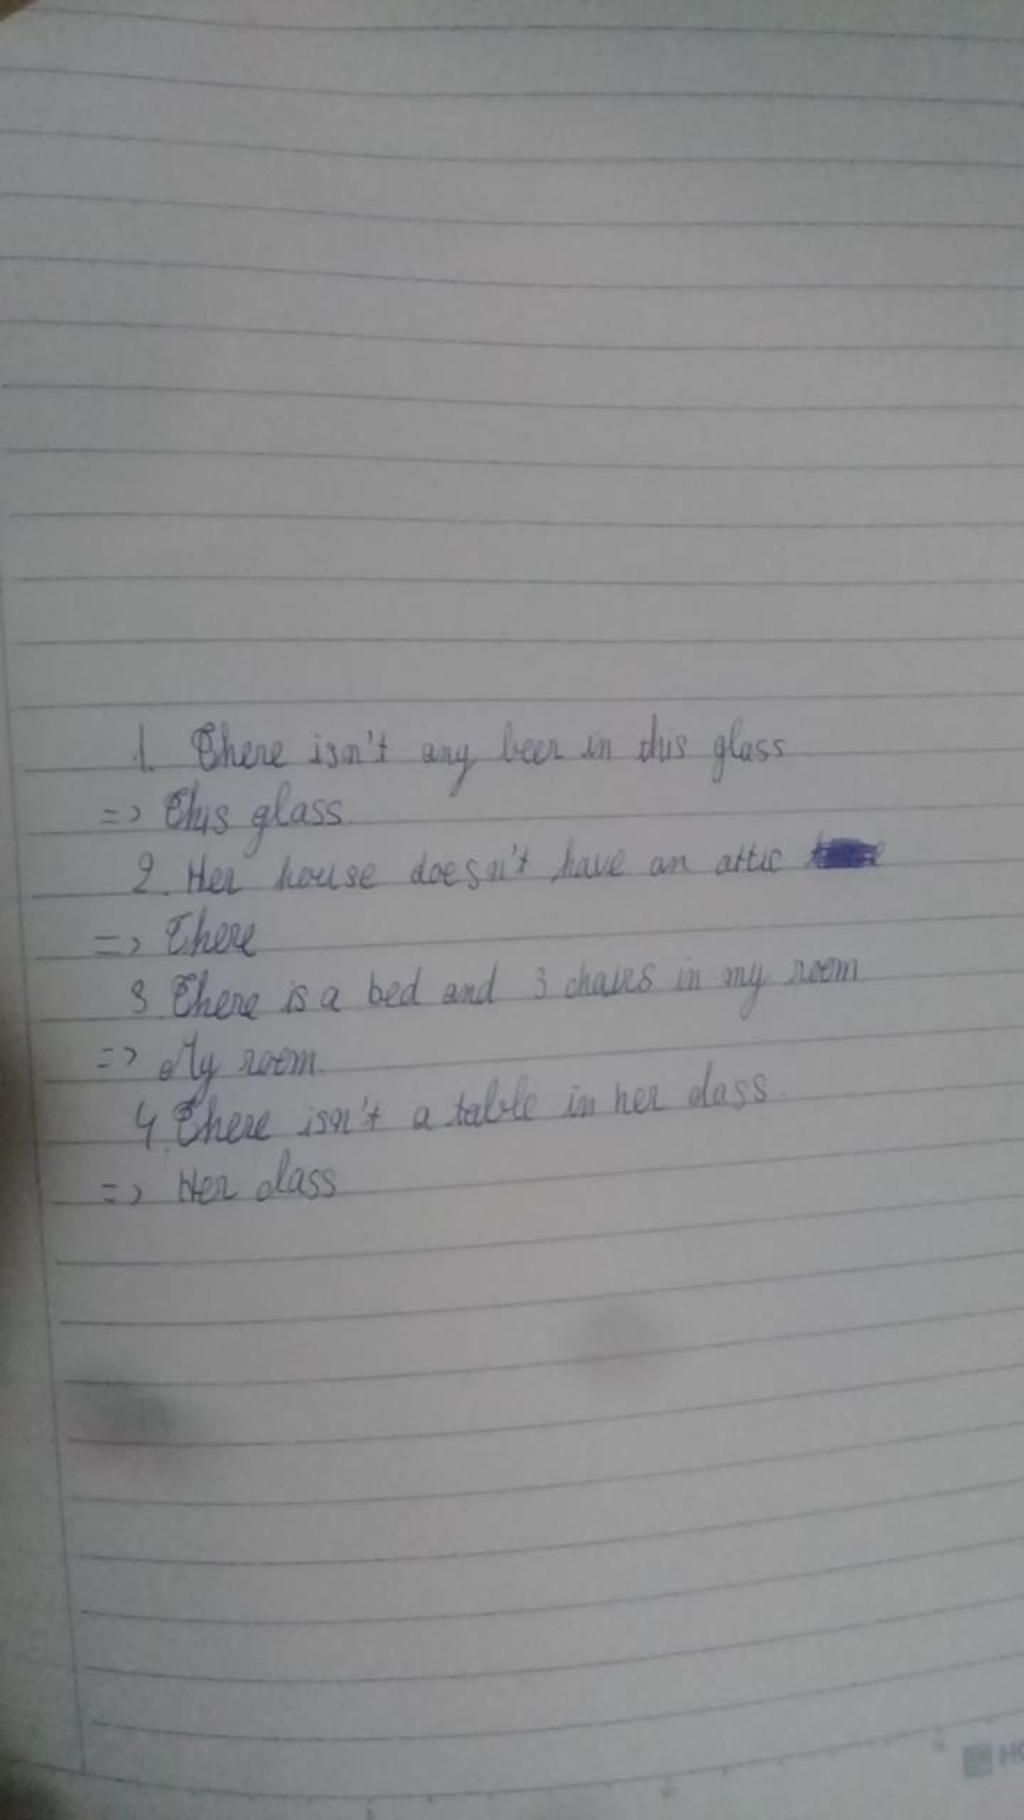 1. There isn't any beer in this glass
=> This glass
2. Her house doesn't have an attic
=> There
3 There is a bed and 3 chairs in my room
=> My room
4. There isn't a table in her class
=> Her class
HO